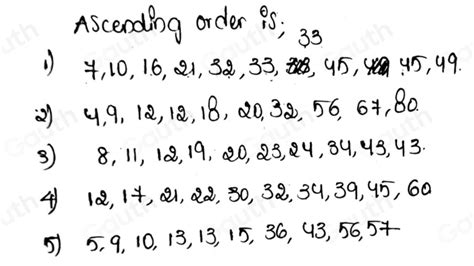 Ascending order is;
33
1) 7, 10, 16, 21, 32, 33, 45, 45, 49.
2) 4, 9, 12, 12, 18, 20, 32, 56, 67, 80.
3) 8, 11, 12, 19, 20, 23, 24, 34, 43, 43.
4) 12, 17, 21, 22, 30, 32, 34, 39, 45, 60
5) 5, 9, 10, 13, 13, 15, 36, 43, 56, 57